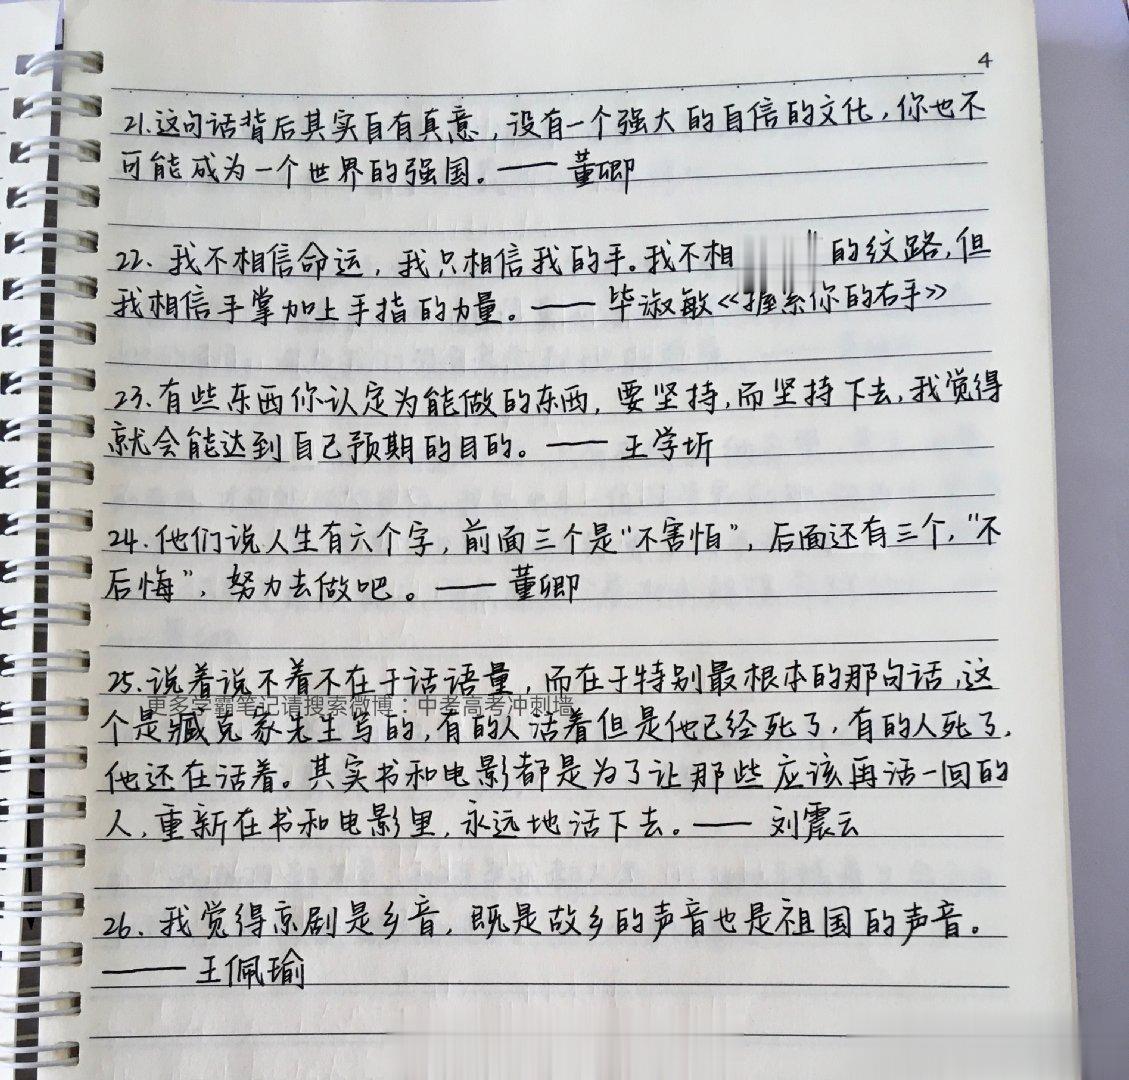 4
21.这句话背后其实自有真意，没有一个强大的自信的文化，你也不
可能成为一个世界的强国。—— 董卿
22. 我不相信命运，我只相信我的手。我不相 的纹路，但
我相信手掌加上手指的力量。—— 毕淑敏《握紧你的右手》
23.有些东西你认定为能做的东西，要坚持，而坚持下去，我觉得
就会能达到自己预期的目的。—— 王学圻
24.他们说人生有六个字，前面三个是“不害怕”，后面还有三个，“不
后悔”，努力去做吧。—— 董卿
25.说着说不着不在于话语量，而在于特别最根本的那句话，这
更多学霸笔记请搜索微博：中考高考冲刺墙
个是臧克家先生写的，有的人活着但是他已经死了，有的人死了，
他还在活着。其实书和电影都是为了让那些应该再活一回的
人，重新在书和电影里，永远地活下去。—— 刘震云
26. 我觉得京剧是乡音，既是故乡的声音也是祖国的声音。
—— 王佩瑜